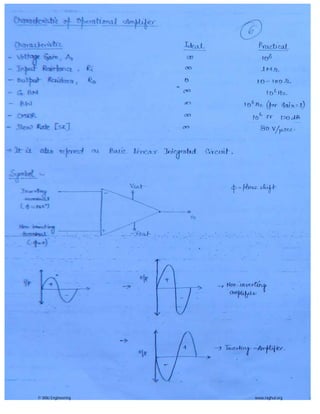 Characteristic of Operational Amplifier
6
Characteristic Ideal Practical
- Voltage Gain, Av ∞ 10⁶
- Input Resistance, Ri ∞ 1MΩ
- Output Resistance, Ro 0 10-100Ω
- G.BW ∞ 10⁶Hz
- BW ∞ 10⁶Hz (for Gain=1)
- CMRR ∞ 10⁶ or 120dB
- Slew Rate [SR] ∞ 80 V/μsec
→ It is also referred as Basic Linear Integrated Circuit.
Symbol -
Inverting terminal
Non inverting terminal
o/p
→ Non inverting amplifier
→ Inverting-Amplifier.
© SMJ Engineering
www.raghul.org